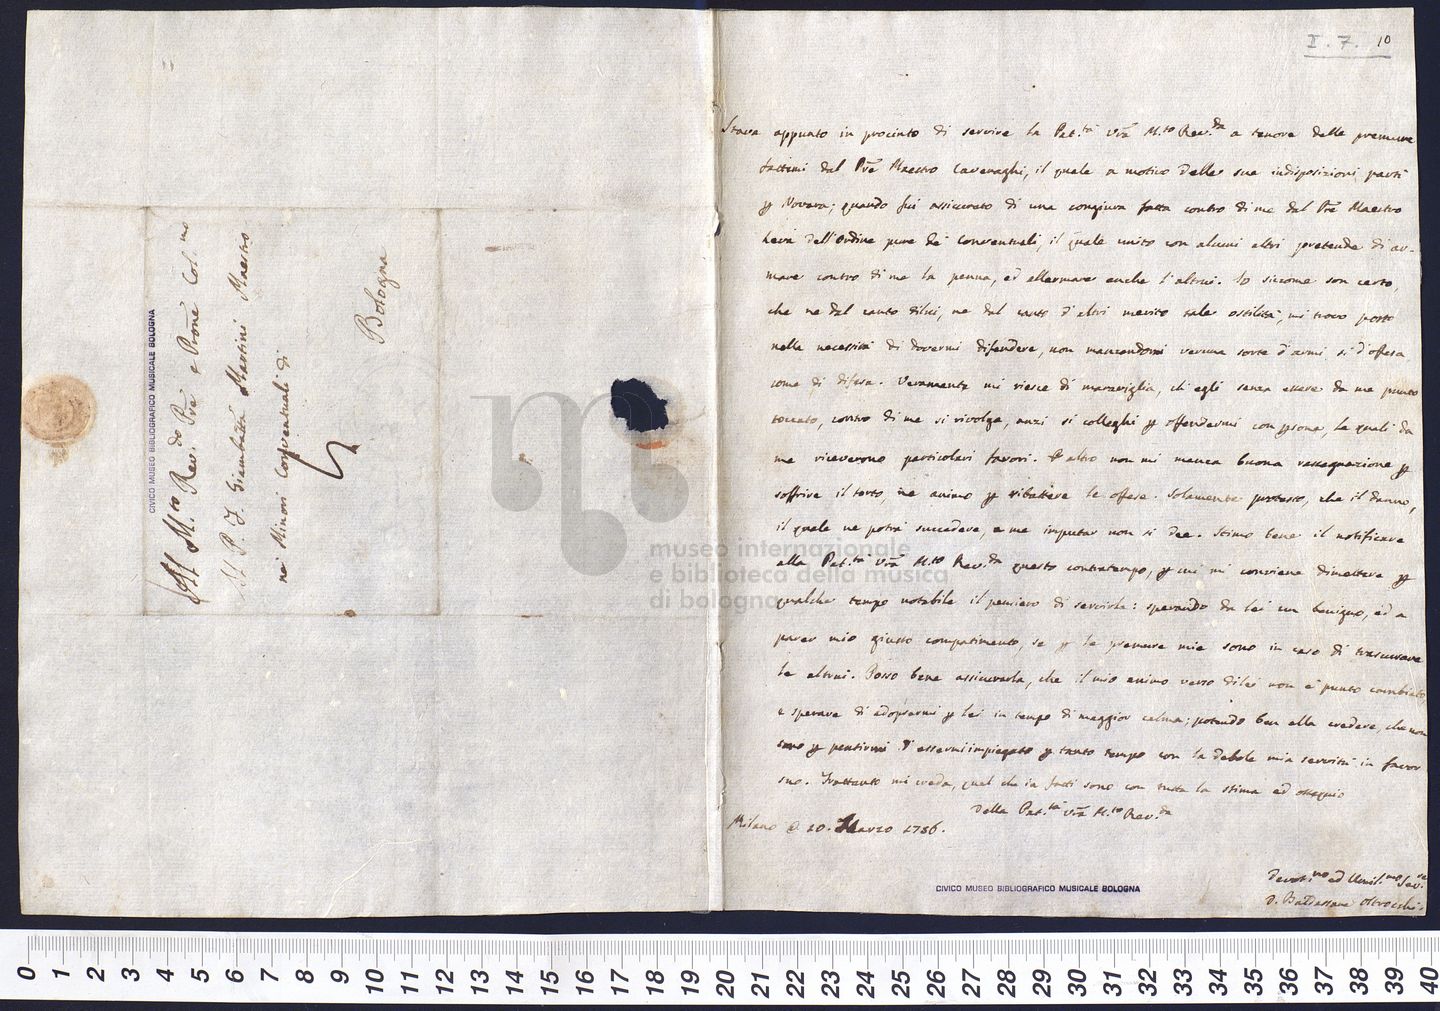 I. 7. 10
Stava appunto in procinto di servire la Pat.tà Vrã M.to Rev.da a tenore delle premure
fattemi dal Prẽ Maestro Cavenaghi, il quale a motivo delle sue indisposizioni partì
ꝑ Novara; quando fui assicurato di una congiura fatta contro di me dal Prẽ Maestro
Levà dell'Ordine pure de' Conventuali, il quale unito con alcuni altri pretende di ar-
mare contro di me la penna, ed allarmare anche l'altrui. Io siccome son certo,
che ne dal canto di lui, ne dal canto d'altri merito tale ostilità, mi trovo posto
nella necessità di dovermi difendere, non mancandomi veruna sorte d'armi sì d'offesa
come di difesa. Veramente mi riesce di maraviglia, ch'egli senza essere da me punto
toccato, contro di me si rivolga, anzi si colleghi ꝑ offendermi con ꝑsone, le quali da
me riceverono particolari favori. Ꝑ altro non mi manca buona rassegnazione ꝑ
soffrire il torto, nè animo ꝑ ribattere le offese. Solamente protesto, che il danno,
il quale ne potrà succedere, a me imputar non si dee. Stimo bene il notificare
alla Pat.tà Vrã M.to Rev.da questo contratempo, ꝑ cui mi conviene dimettere ꝑ
qualche tempo notabile il pensiero di servirla: sperando da lei un benigno, ed a
parer mio giusto compatimento, se ꝑ le premure mie sono in caso di trascurare
le altrui. Posso bene assicurarla, che il mio animo verso di lei non è punto cambiato,
e sperare di adoprarmi ꝑ lei in tempo di maggior calma; potendo ben ella credere, che non
sono ꝑ pentirmi d'essermi impiegato ꝑ tanto tempo con la debole mia servitù in favor
suo. Frattanto mi creda, qual che in fatti sono con tutta la stima ed ossequio
Della Pat.tà Vrã M.to Rev.da
Milano @ 10. Marzo 1756.
Devot.mo ed Umil.mo Ser.re
D. Baldassare Oltrocchi
CIVICO MUSEO BIBLIOGRAFICO MUSICALE BOLOGNA
Al M.to Rev.do Prẽ e Pronẽ Col.mo
Il P. F. Giambatta Martini Maestro
nei Minori Conventuali di
Bologna
CIVICO MUSEO BIBLIOGRAFICO MUSICALE BOLOGNA
museo internazionale
e biblioteca della musica
di bologna
0 1 2 3 4 5 6 7 8 9 10 11 12 13 14 15 16 17 18 19 20 21 22 23 24 25 26 27 28 29 30 31 32 33 34 35 36 37 38 39 40